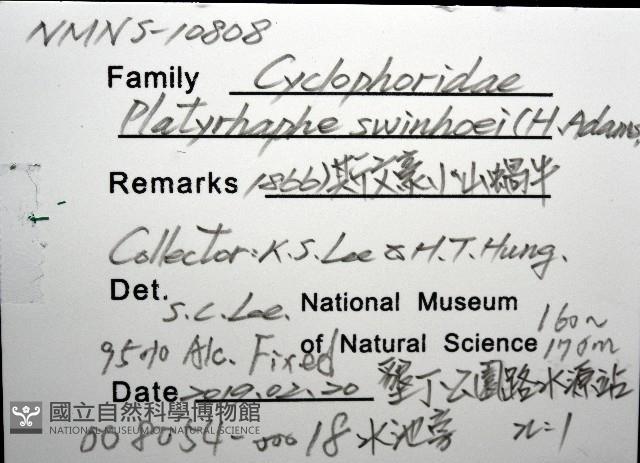 NMNS-10808
Family Cyclophoridae
Platyrhaphe swinhoei (H. Adams,
Remarks 1866) 斯文豪小山蝸牛
Collector: K.S. Lee & H.T. Hung.
Det. S.C. Lee. National Museum 160~
95% Alc. Fixed of Natural Science 170m
Date 2019.02.20 墾丁公園路水源站
國立自然科學博物館
NATIONAL MUSEUM OF NATURAL SCIENCE
008054-00018 水池旁 n=1